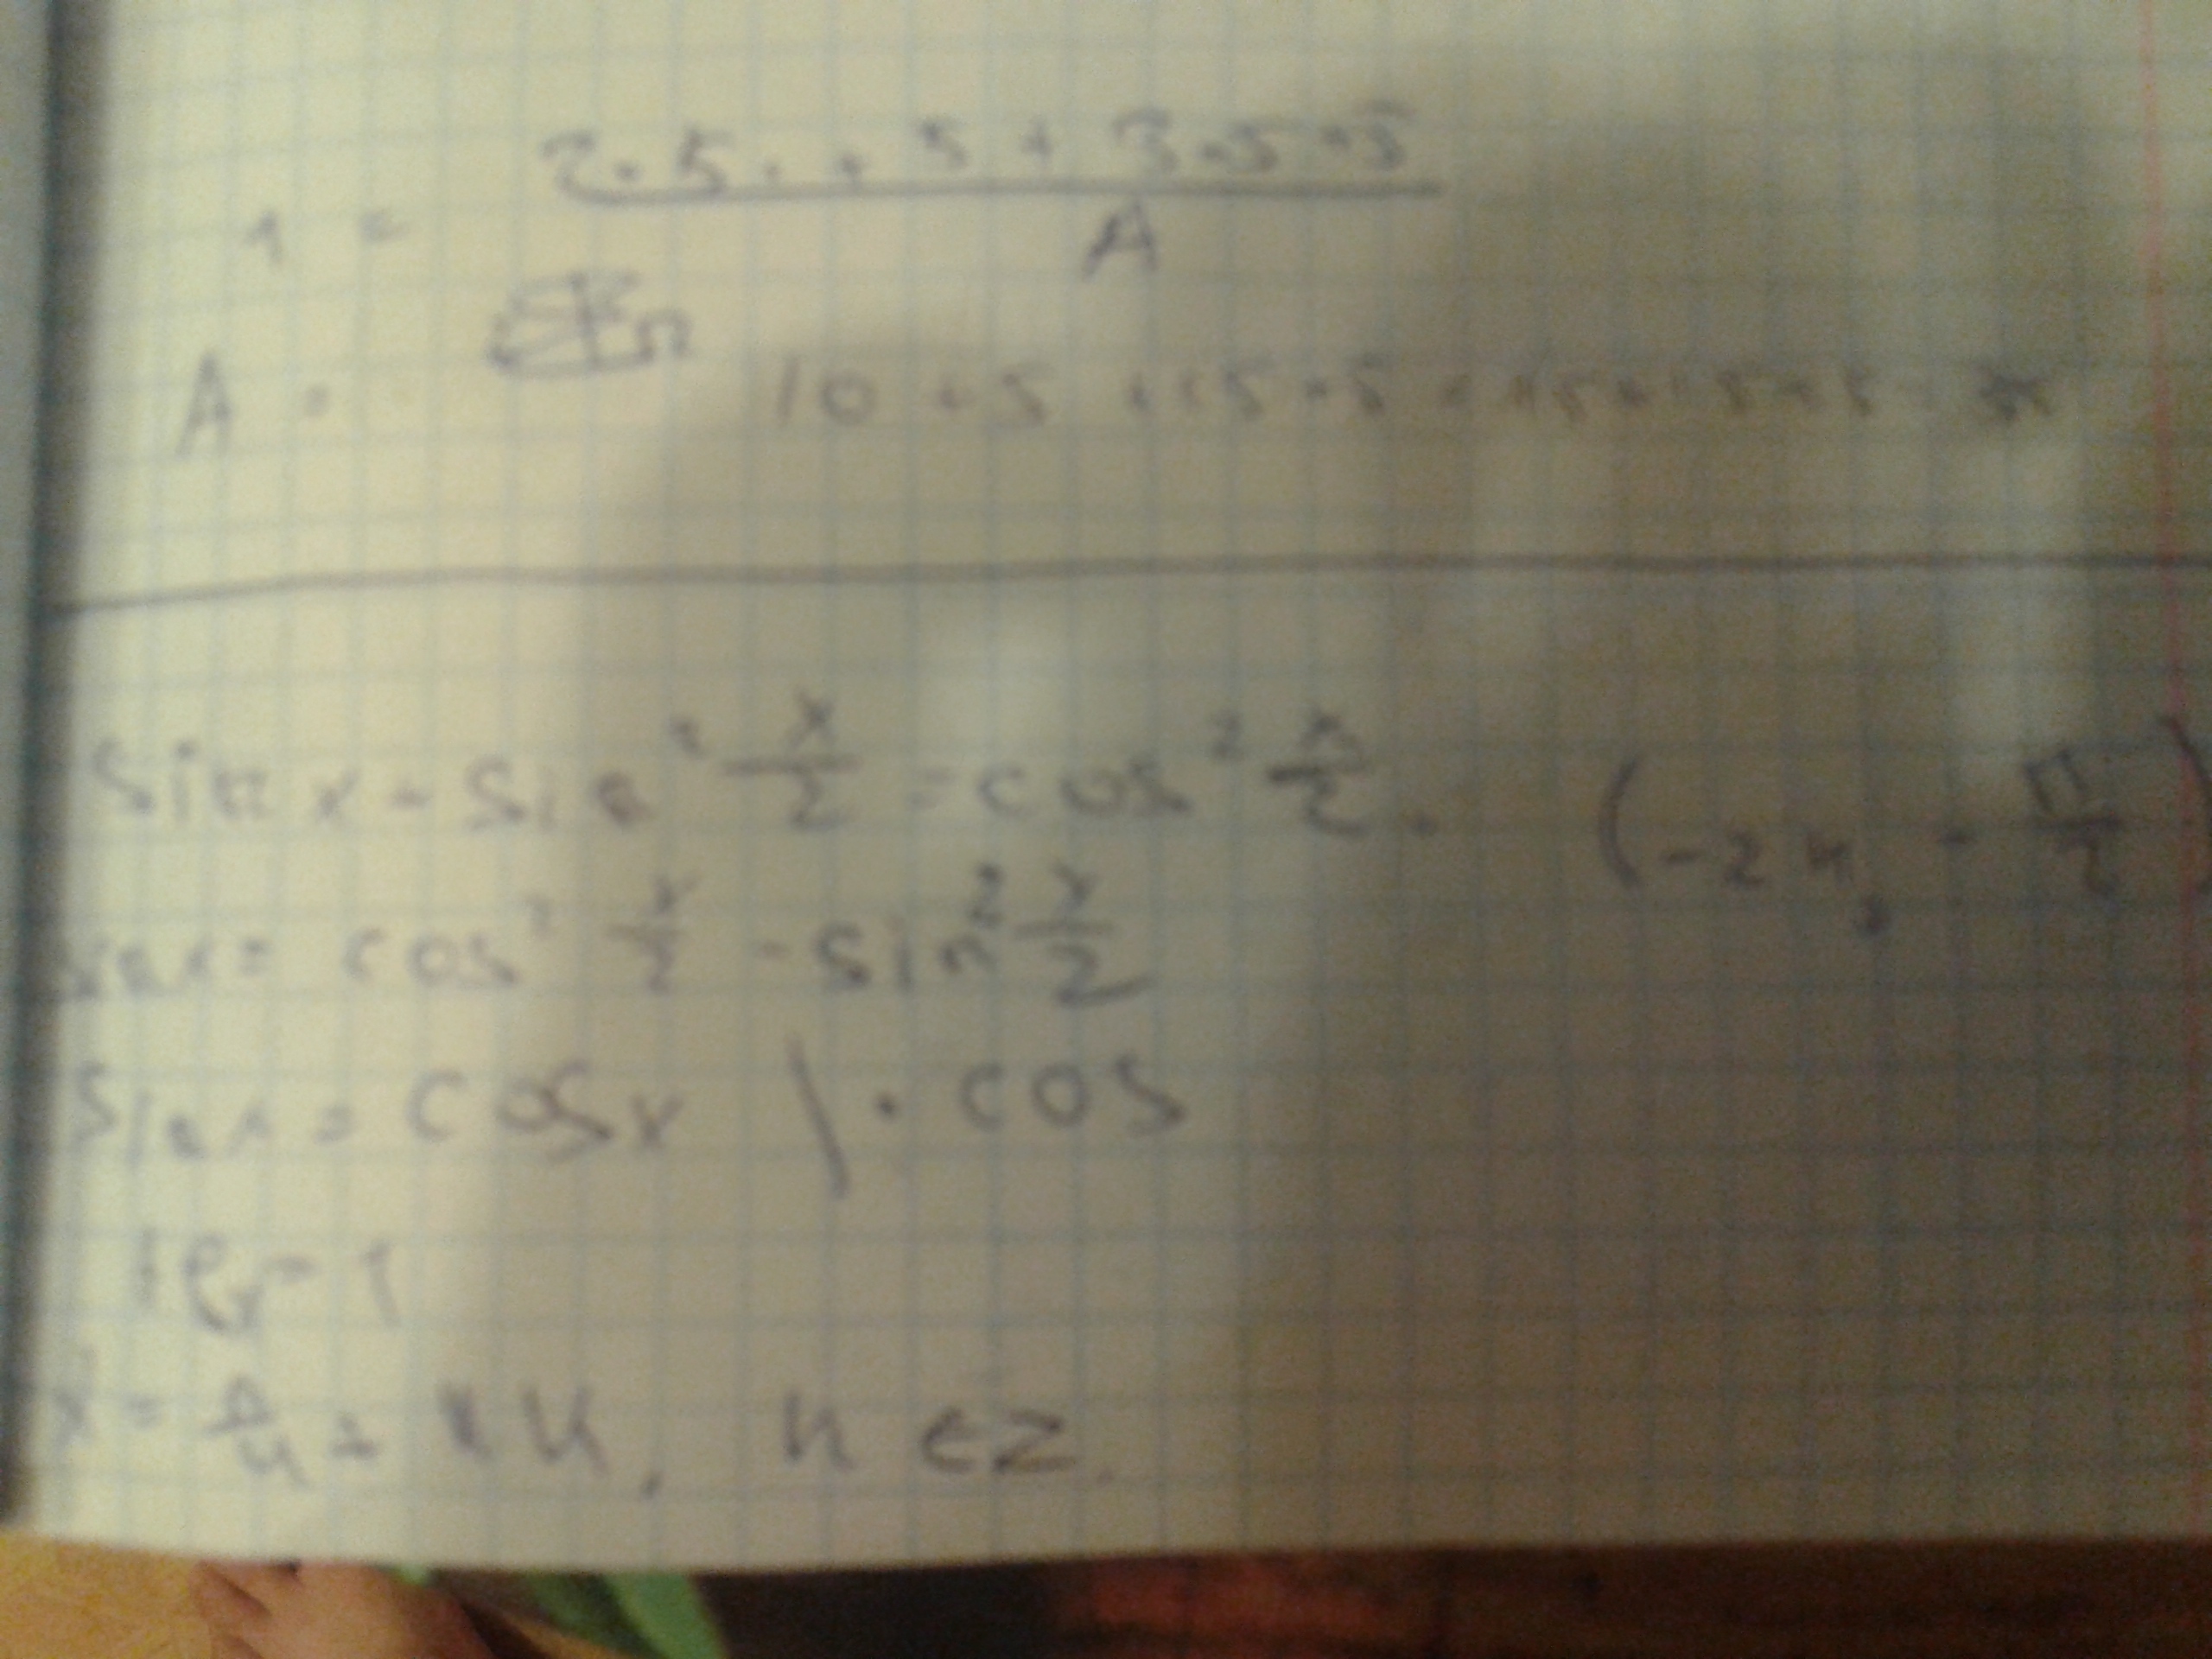 1 = 2·5·+5+3·5+5 / A
A = 10+5+15+5
sin x + sin² x/2 = cos² x/2. (-2π, -π/2)
sin x = cos² x/2 - sin² x/2
sin x = cos x | · cos
tg = 1
x = π/4 + πn, n ∈ Z.